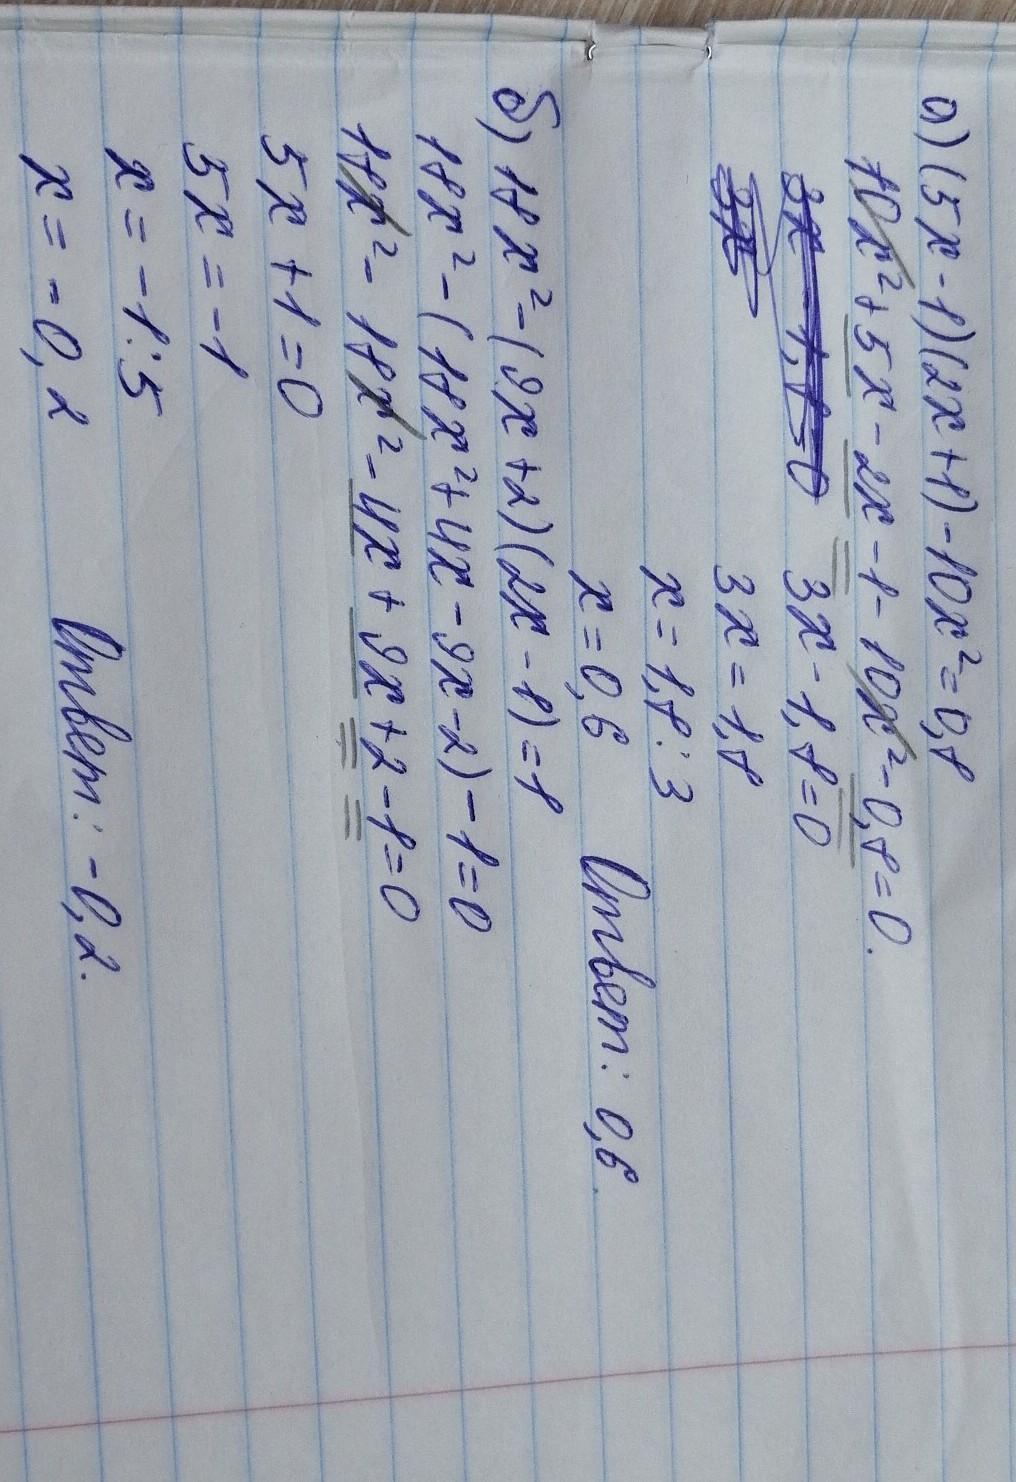 а) (5x-1)(2x+1)-10x²=0,8
10x²+5x-2x-1-10x²-0,8=0.
3x-1,8=0 3x-1,8=0
3x 3x=1,8
x=1,8:3
x=0,6 Ответ: 0,6.
б) 18x²-(9x+2)(2x-1)=1
18x²-(18x²+4x-9x-2)-1=0
18x²-18x²-4x+9x+2-1=0
5x+1=0
5x=-1
x=-1:5
x=-0,2 Ответ: -0,2.